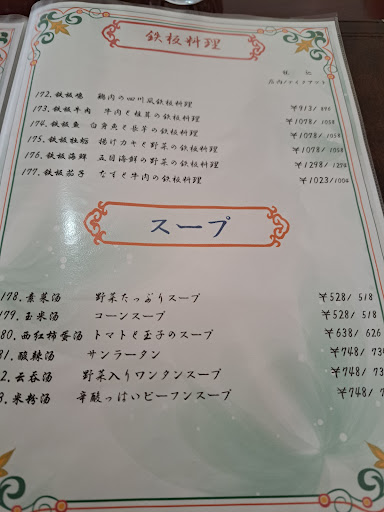 鉄板料理
税込
店内/テイクアウト
172. 鉄板鶏 鶏肉の四川風鉄板料理 ¥913/ 896
173. 鉄板牛肉 牛肉と椎茸の鉄板料理 ¥1078/ 1058
174. 鉄板魚 白身魚と長芋の鉄板料理 ¥1078/ 1058
175. 鉄板牡蛎 揚げカキと野菜の鉄板料理 ¥1078/ 1058
176. 鉄板海鮮 五目海鮮の野菜の鉄板料理 ¥1298/ 127
177. 鉄板茄子 なすと牛肉の鉄板料理 ¥1023/ 100
スープ
178. 素菜湯 野菜たっぷりスープ ¥528/ 518
179. 玉米湯 コーンスープ ¥528/ 518
80. 西紅柿蛋湯 トマトと玉子のスープ ¥638/ 626
81. 酸辣湯 サンラータン ¥748/ 73
2. 云呑湯 野菜入りワンタンスープ ¥748/ 73
3. 米粉湯 辛酸っぱいビーフンスープ ¥748/ 7